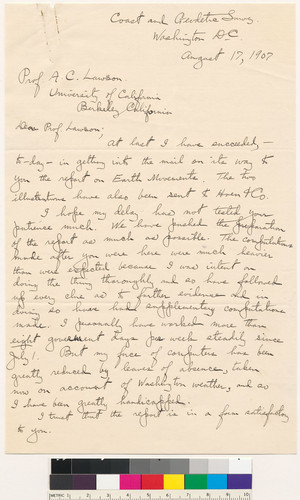 Coast and Geodetic Survey.
Washington D.C.
August 17, 1907
Prof. A. C. Lawson.
University of California
Berkeley California
Dear Prof Lawson;
At last I have succeeded –
to-day – in getting into the mail on its way to
you the report on Earth Movements. The two
illustrations have also been sent to Hoen & Co.
I hope my delay has not tested your
patience much. We have pushed the preparation
of the report as much as possible. The computations
made after you were here were much heavier
than were expected because I was intent on
doing the thing thoroughly and so have followed
up every clue as to further evidence and in
doing so have had supplementary computations
made. I personally have worked more than
eight government days per week steadily since
July 1. But my force of computers has been
greatly reduced by leaves of absence, taken
now on account of Washington weather, and so
I have been greatly handicapped.
I trust that the report is in a form satisfactory
to you.
METRIC 1 2 3 4 5 6 7 8 9 10